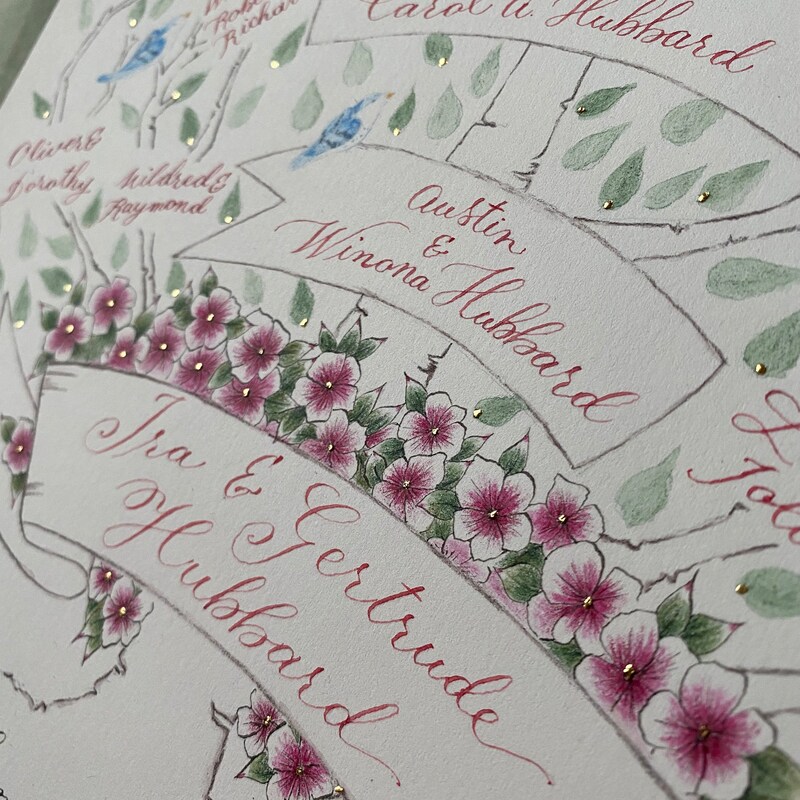 Robe
Richar
Carol A. Hubbard
Oliver &
Dorothy
Mildred &
Raymond
Austin
&
Winona Hubbard
Ira & Gertrude
Hubbard